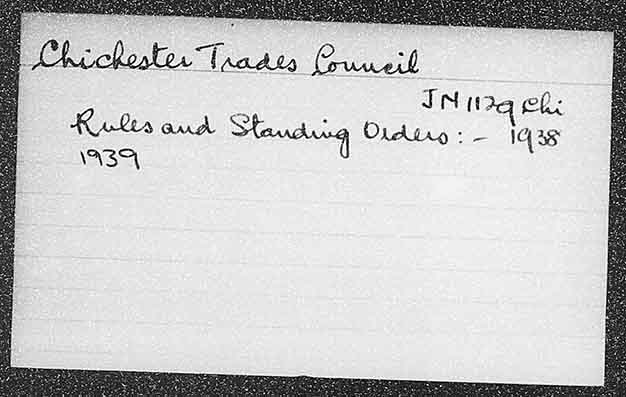 Chichester Trades Council
JN 1129 Chi
Rules and Standing Orders : - 1938
1939